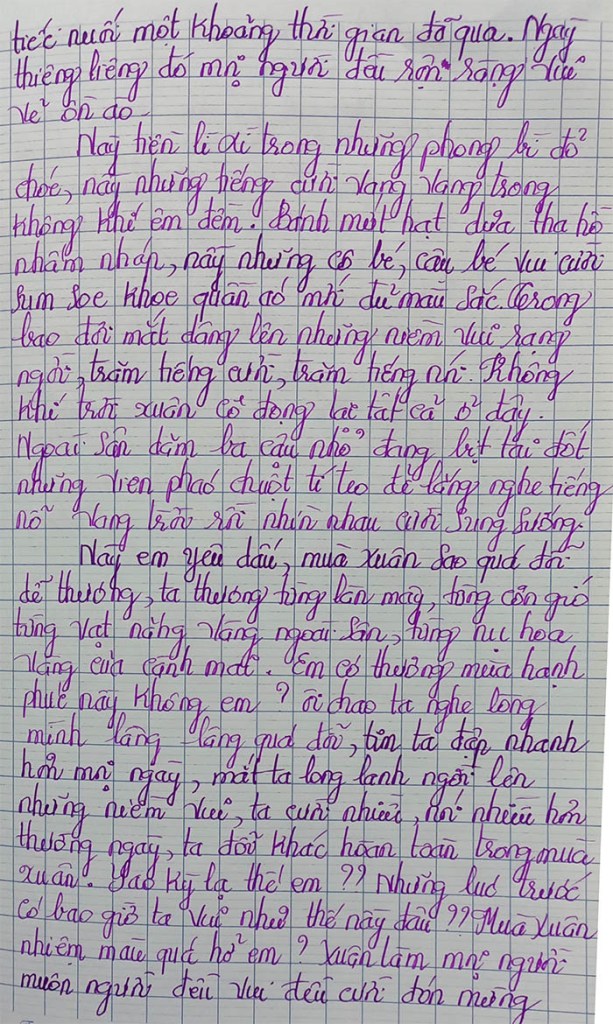 tiếc nuối một khoảng thời gian đã qua. Ngày
thiêng liêng đó mọi người đều rộn ràng vui
vẻ ồn ào
Này tiền lì xì trong những phong bì đỏ
choé, này những tiếng cười vang vang trong
không khí êm đềm. Bánh mứt hạt dưa tha hồ
nhâm nháp, này những cô bé, cậu bé vui cười
sum soe khoe quần áo mới đủ màu sắc. Trong
bao đôi mắt dâng lên những niềm vui rạng
ngời, trăm tiếng cười, trăm tiếng nói. Không
khí trời xuân cô đọng lại tất cả ở đây.
Ngoài sân dăm ba cậu nhỏ đang bịt tai đốt
những viên pháo chuột tí teo để lắng nghe tiếng
nổ vang trời rồi nhìn nhau cười sung sướng.
Này em yêu dấu, mùa xuân sao quá đỗi
dễ thương, ta thương từng làn mây, từng cơn gió
từng vạt nắng vàng ngoài sân, từng nụ hoa
vàng của cành mai. Em có thương mùa hạnh
phúc này không em? ôi chao ta nghe lòng
mình lâng lâng quá đỗi, tim ta đập nhanh
hơn mọi ngày, mắt ta long lanh ngời lên
những niềm vui, ta cười nhiều, nói nhiều hơn
thường ngày, ta đổi khác hoàn toàn trong mùa
xuân. Sao kỳ lạ thế em?? Những lúc trước
có bao giờ ta vui như thế này đâu?? Mùa Xuân
nhiệm màu quá hở em? Xuân làm mọi người
muôn người đều vui đều cười đón mừng